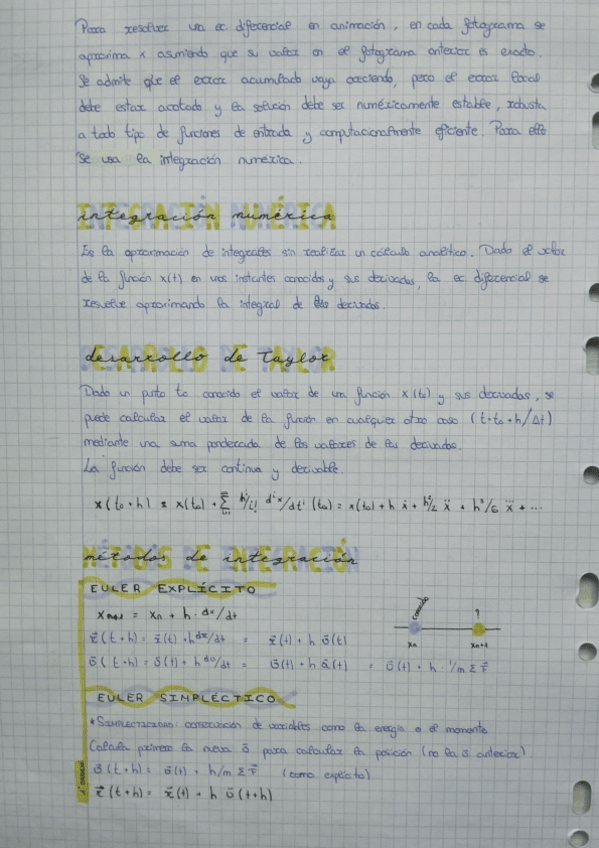 Para resolver una ec. diferencial en animación, en cada fotograma se
aproxima x asumiendo que su valor en el fotograma anterior es exacto.
Se admite que el error acumulado vaya creciendo, pero el error local
debe estar acotado y la solución debe ser numéricamente estable, robusta
a todo tipo de funciones de entrada y computacionalmente eficiente. Para ello
se usa la integración numérica.
INTEGRACIÓN NUMÉRICA
integración numérica
Es la aproximación de integrales sin realizar un cálculo analítico. Dado el valor
de la función x(t) en unos instantes conocidos y sus derivadas, la ec. diferencial se
resuelve aproximando la integral de las derivadas.
DESARROLLO DE TAYLOR
desarrollo de Taylor
Dado un punto t₀ conocido el valor de una función x(t₀) y sus derivadas, se
puede calcular el valor de la función en cualquier otro caso (t=t₀+h/Δt)
mediante una suma ponderada de los valores de las derivadas.
La función debe ser continua y derivable.
x(t₀+h) = x(t₀) + Σ hⁱ/i! dⁱx/dtⁱ (t₀) = x(t₀) + h ẋ + h²/2 ẍ + h³/6 x⃛ + ...
MÉTODOS DE INTEGRACIÓN
métodos de integración
EULER EXPLÍCITO
conocido ?
xn+1 = xn + h · dx/dt
xn xn+1
x⃗(t+h) = x⃗(t) + h dx/dt = x⃗(t) + h v⃗(t)
v⃗(t+h) = v⃗(t) + h dv/dt = v⃗(t) + h a⃗(t) = v⃗(t) + h · 1/m Σ F⃗
EULER SIMPLÉCTICO
*SIMPLECTICIDAD: conservación de variables como la energía o el momento
Calcula primero la nueva v⃗ para calcular la posición (no la v⃗ anterior)
v⃗(t+h) = v⃗(t) + h/m Σ F⃗ (como explícito)
x⃗(t+h) = x⃗(t) + h v⃗(t+h)
1º ORDEN